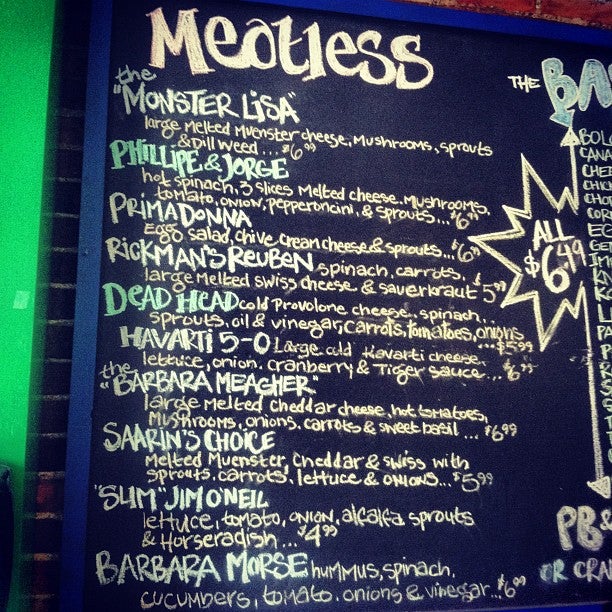 Meatless
the
"MONSTER LISA"
large Melted Muenster cheese, Mushrooms, sprouts
& Dill weed ... $6.99
PHILLIPE & JORGE
hot spinach, 3 slices Melted cheese, Mushrooms,
tomato, onion, pepperoncini, & sprouts... $6.99
PRIMADONNA
Egg salad, chive cream cheese & sprouts... $6.99
RICKMAN'S REUBEN spinach, carrots,
large Melted swiss cheese & sauerkraut 5.99
DEAD HEAD cold Provolone cheese, spinach,
sprouts, oil & vinegar, carrots, tomatoes, onions
... $5.99
HAVARTI 5-0 Large cold Havarti cheese,
lettuce, onion, cranberry & Tiger sauce... $6.99
the
"BARBARA MEAGHER"
large melted cheddar cheese, hot tomatoes,
Mushrooms, onions, carrots & sweet basil ... $6.99
SAARIN'S CHOICE
Melted Muenster, Cheddar & swiss with
sprouts, carrots, lettuce & onions... $5.99
"SLIM" JIM O'NEIL
lettuce, tomato, onion, alfalfa sprouts
& Horseradish ... $4.99
BARBARA MORSE hummus, spinach,
cucumbers, tomato, onions & vinegar... $6.99
THE BA
ALL
$6.49
BOLO
CANA
CHE
CHIC
CHO
COR
EG
GE
IM
PB&
OR CRA